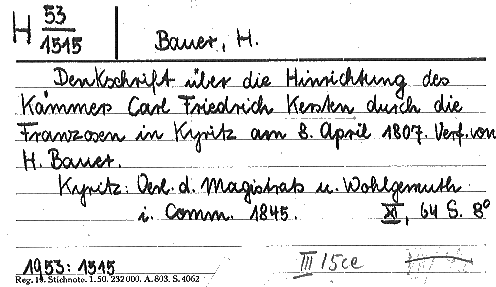 H 53/1515
Bauer, H.
Denkschrift über die Hinrichtung des
Kämmers Carl Friedrich Kersten durch die
Franzosen in Kyritz am 8. April 1807. Verf. von
H. Bauer.
Kyritz: Verl. d. Magistrats u. Wohlgemuth
i. Comm. 1845. XI, 64 S. 8°
1953: 1515
III 15ce
Reg. 19. Stichnote. 1. 50. 232 000. A. 803. S. 4062